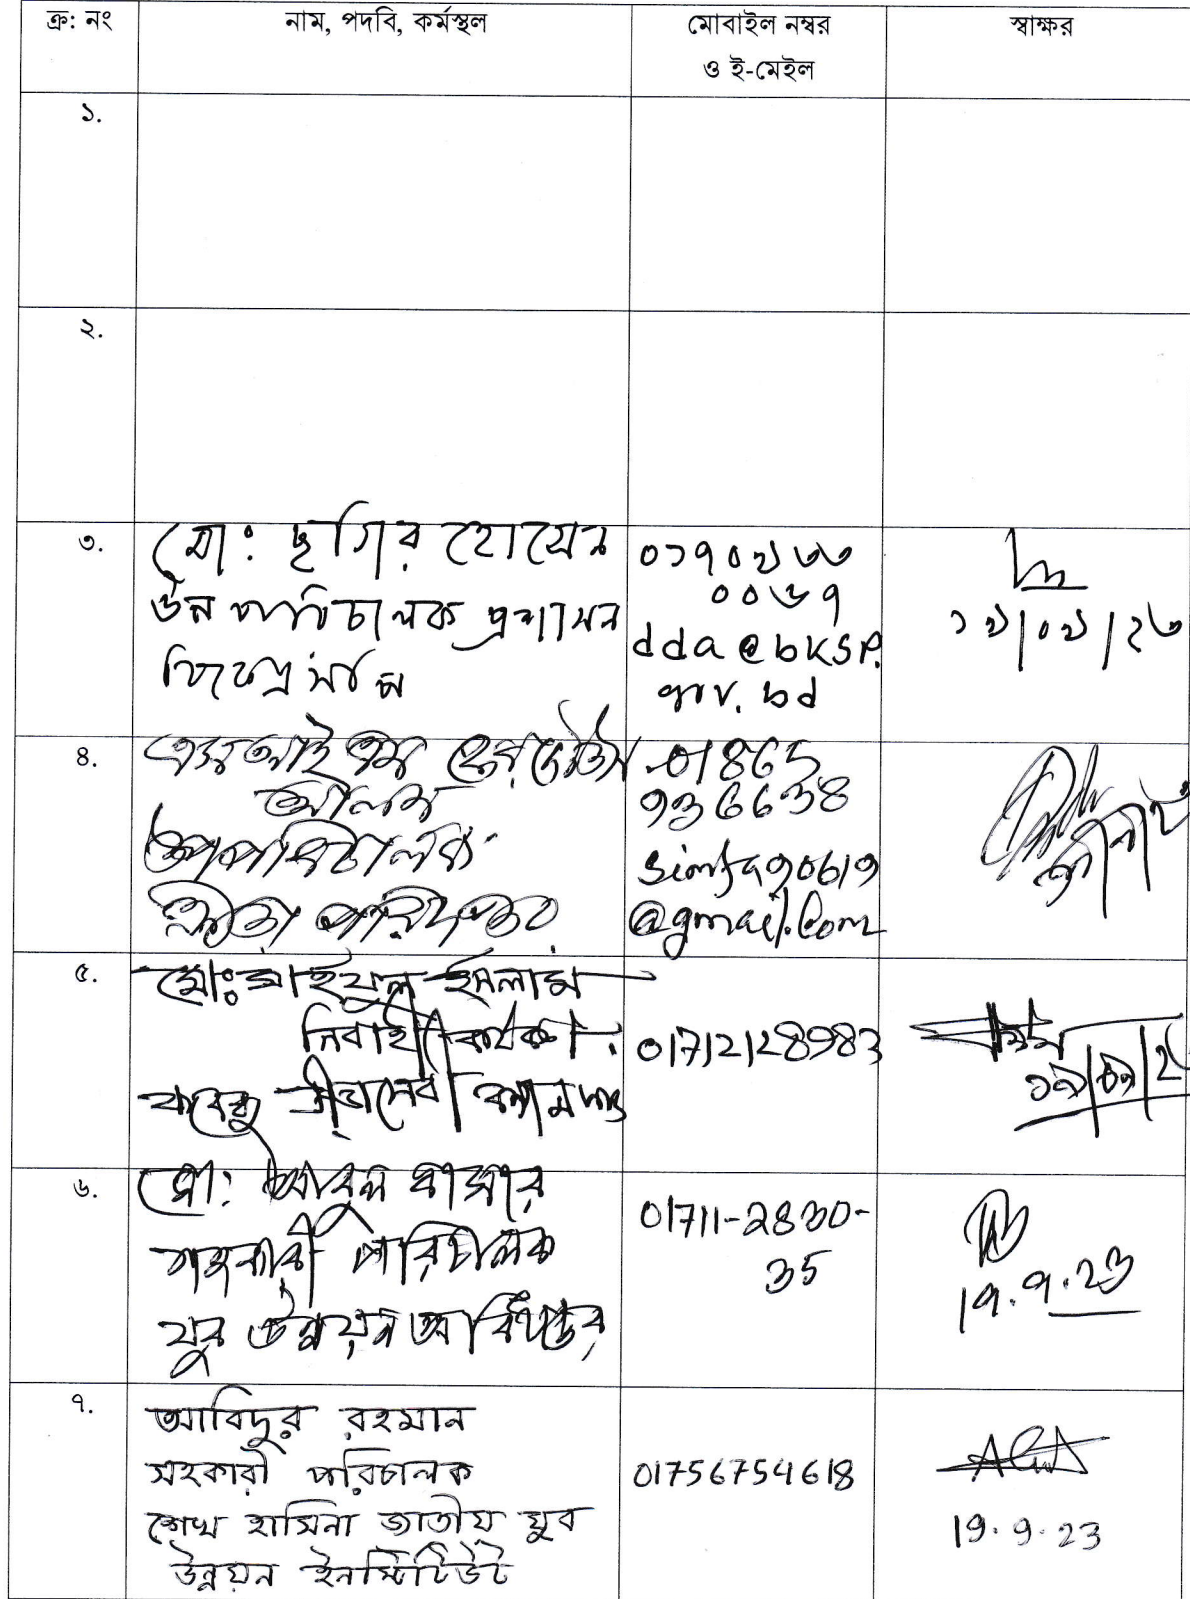 ক্র: নং
নাম, পদবি, কর্মস্থল
মোবাইল নম্বর
ও ই-মেইল
স্বাক্ষর
১.
২.
৩.
মো: ছগির হোসেন
উপ পরিচালক প্রশাসন
বিকেএসপি
০১৭০৯৩৩
০০৬৭
dda@bksp.
gov.bd
১৯/০৯/২৩
৪.
এস আই এম ফেরদৌস
আলম
উপপরিচালক
ক্রীড়া পরিদপ্তর
01865
936638
@gmail.com
৫.
মো: সাইফুল ইসলাম
নির্বাহী
ক্রীড়াসেবী
01712128983
৬.
মো: আবুল বাসার
সহকারী পরিচালক
যুব উন্নয়ন অধিদপ্তর
01711-2830-
35
19.9.23
৭.
আবিদুর রহমান
সহকারী পরিচালক
শেখ হাসিনা জাতীয় যুব
উন্নয়ন ইনস্টিটিউট
01756754618
19.9.23